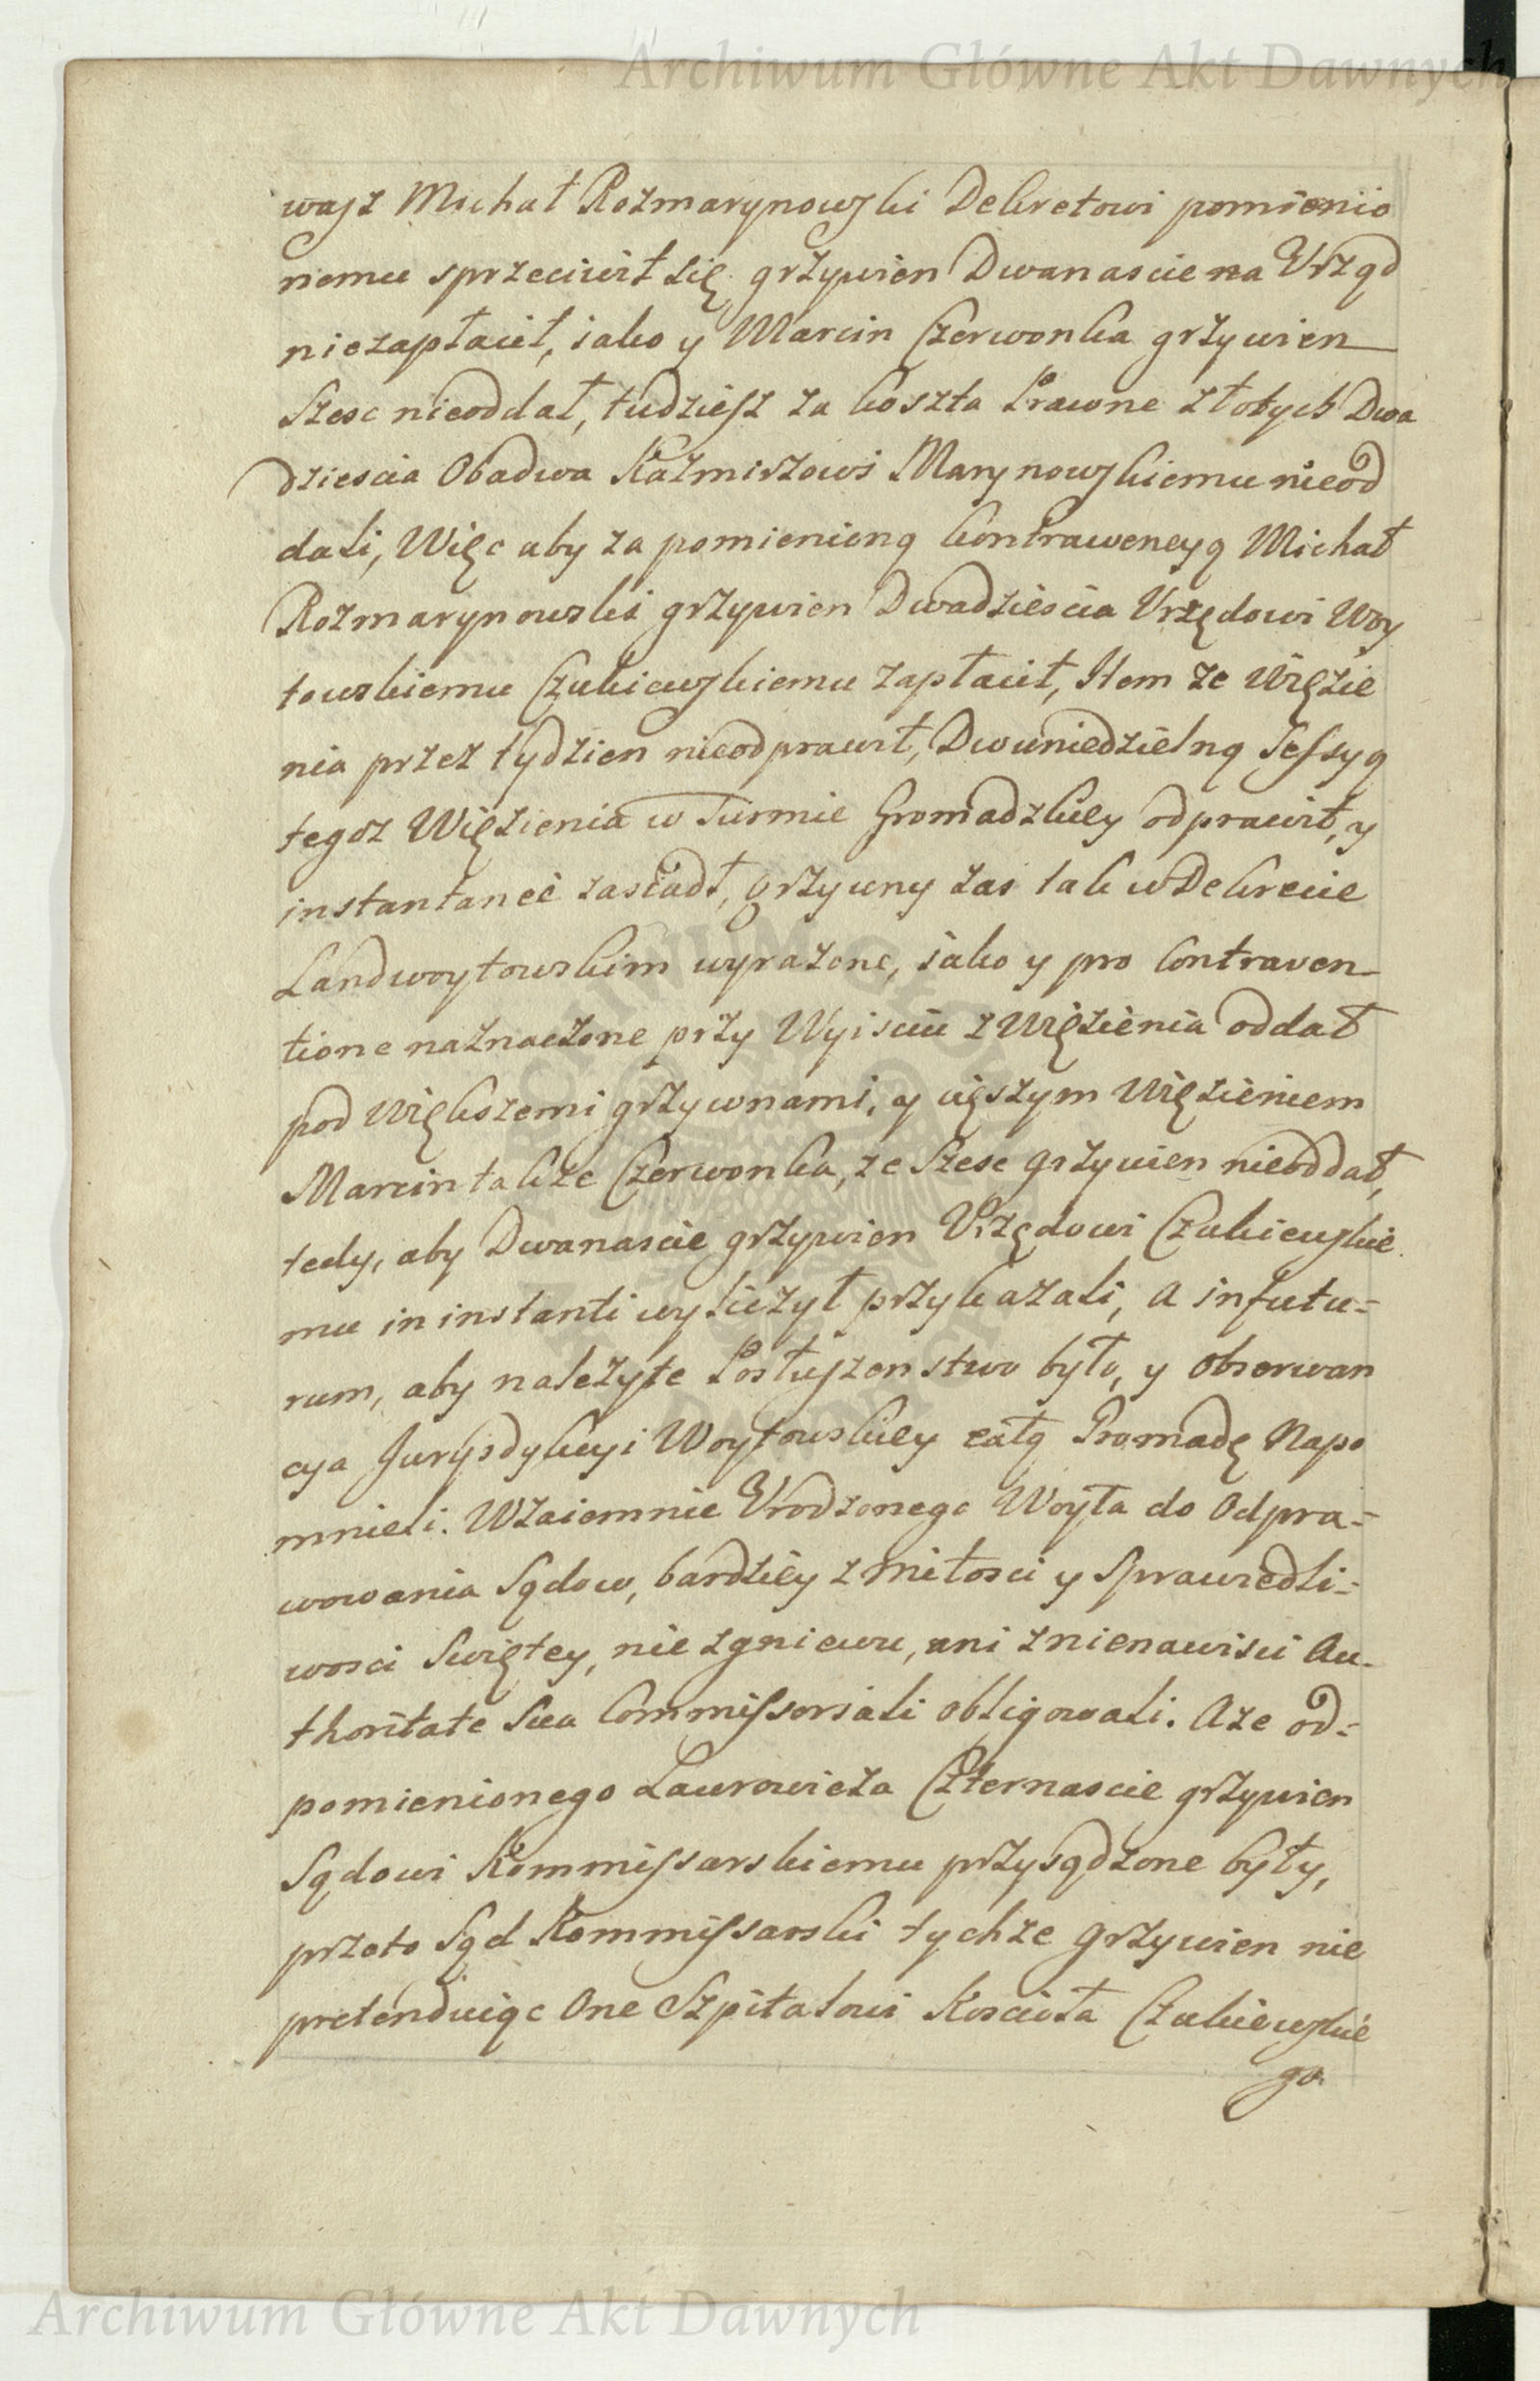 Archiwum Główne Akt Dawnych
wasz Michał Rozmarynowski Dekretowi pomienio
nemu sprzeciwił się grzywien Dwanascie na Vrząd
niezapłacił, iako y Marcin Czerwonka grzywien
Szesc nieoddał, tudziesz za koszta Prawne złotych Dwa
dziescia Obadwa Kazmirzowi Marynowskiemu nieod
dali, Więc aby za pomienioną kontrawencyą Michał
Rozmarynowski grzywien Dwadziescia Vrzędowi Woy
towskiemu Czukiewskiemu zapłacił, Item ze więzie
nia przez tydzien nieodprawił, Dwuniedzielną Sessyą
tegoz Więzienia w Turmie Gromadzkiey odprawił, y
instantaneè zasiadł, grzywny zas tak w Dekrecie
Landwoytowskim wyrazone, iako y pro Contraven
tione naznaczone przy Wyisciu z więzienia oddał
pod większemi grzywnami, y cięszym więzieniem
Marcin takze Czerwonka, ze Szesc grzywien nieoddał,
tedy, aby Dwanascie grzywien Vrzędowi Czukiewskie
mu in instanti wyliczył przykazali, a infutu=
rum, aby nalezyte Posłuszenstwo było, y obserwan
cya Jurysdykcyi Woytowskiey całą Gromadę Napo
mnieli. Wzaiemnie Vrodzonego Woyta do Odpra=
wowania Sądow, bardziey z miłosci y Sprawiedli=
wosci Swiętey, nie zgniewu, ani znienawisci Au-
thoritate Sua Commissoriali obligowali. Aze od=
pomienionego Lawrowicza Czternascie grzywien
Sądowi Kommissarskiemu przysądzone były,
przeto Sąd Kommissarski tychze grzywien nie
pretenduiąc One Szpitalowi Koscioła Czukiewskie
go.
Archiwum Główne Akt Dawnych